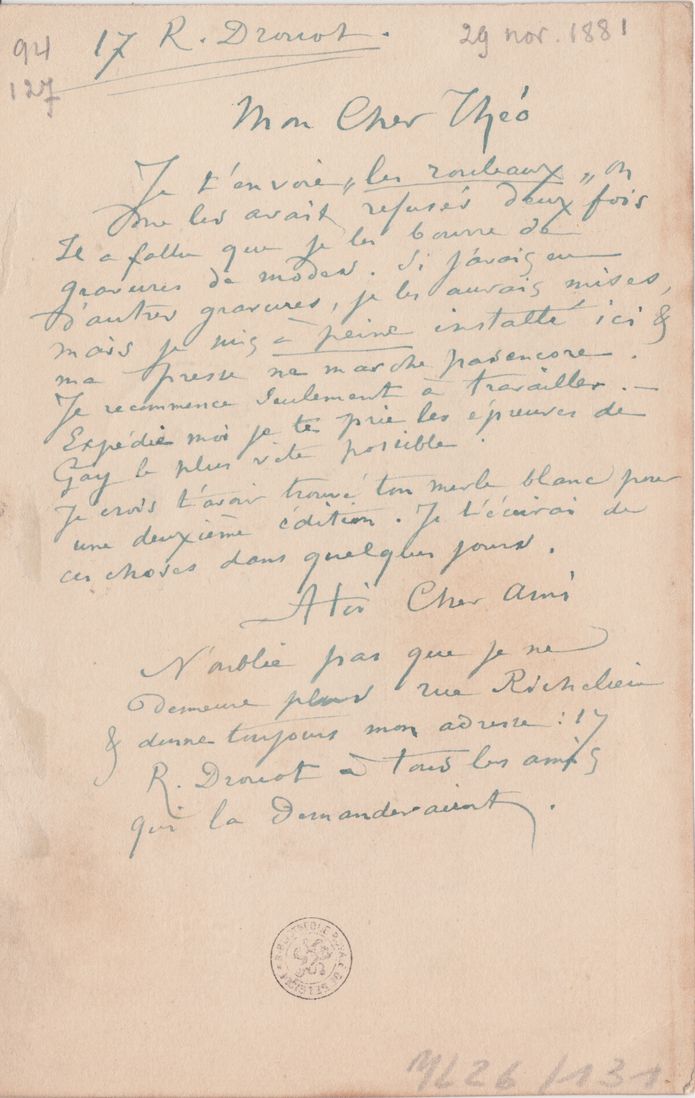 94
127
17 R. Drouot.
29 nov. 1881
Mon Cher Théo
Je t'envoie „les rouleaux„ on
me les avait refusés deux fois
Il a fallu que je les bourre de
gravures de modes. Si j'avais eu
d'autres gravures, je les aurais mises,
mais je suis à peine installé ici &
ma presse ne marche pas encore.
Je recommence seulement à travailler. —
Expédie moi je te prie les épreuves de
Gay le plus vite possible.
Je crois t'avoir trouvé ton merle blanc pour
une deuxième édition. Je t'écrirai de
ces choses dans quelques jours.
A toi Cher Ami
N'oublie pas que je ne
demeure plus rue Richelieu
& donne toujours mon adresse: 17
R. Drouot à tous les amis
qui la demanderaient.
BIBLIOTHÈQUE ROYALE DE BELGIQUE
ML26/131